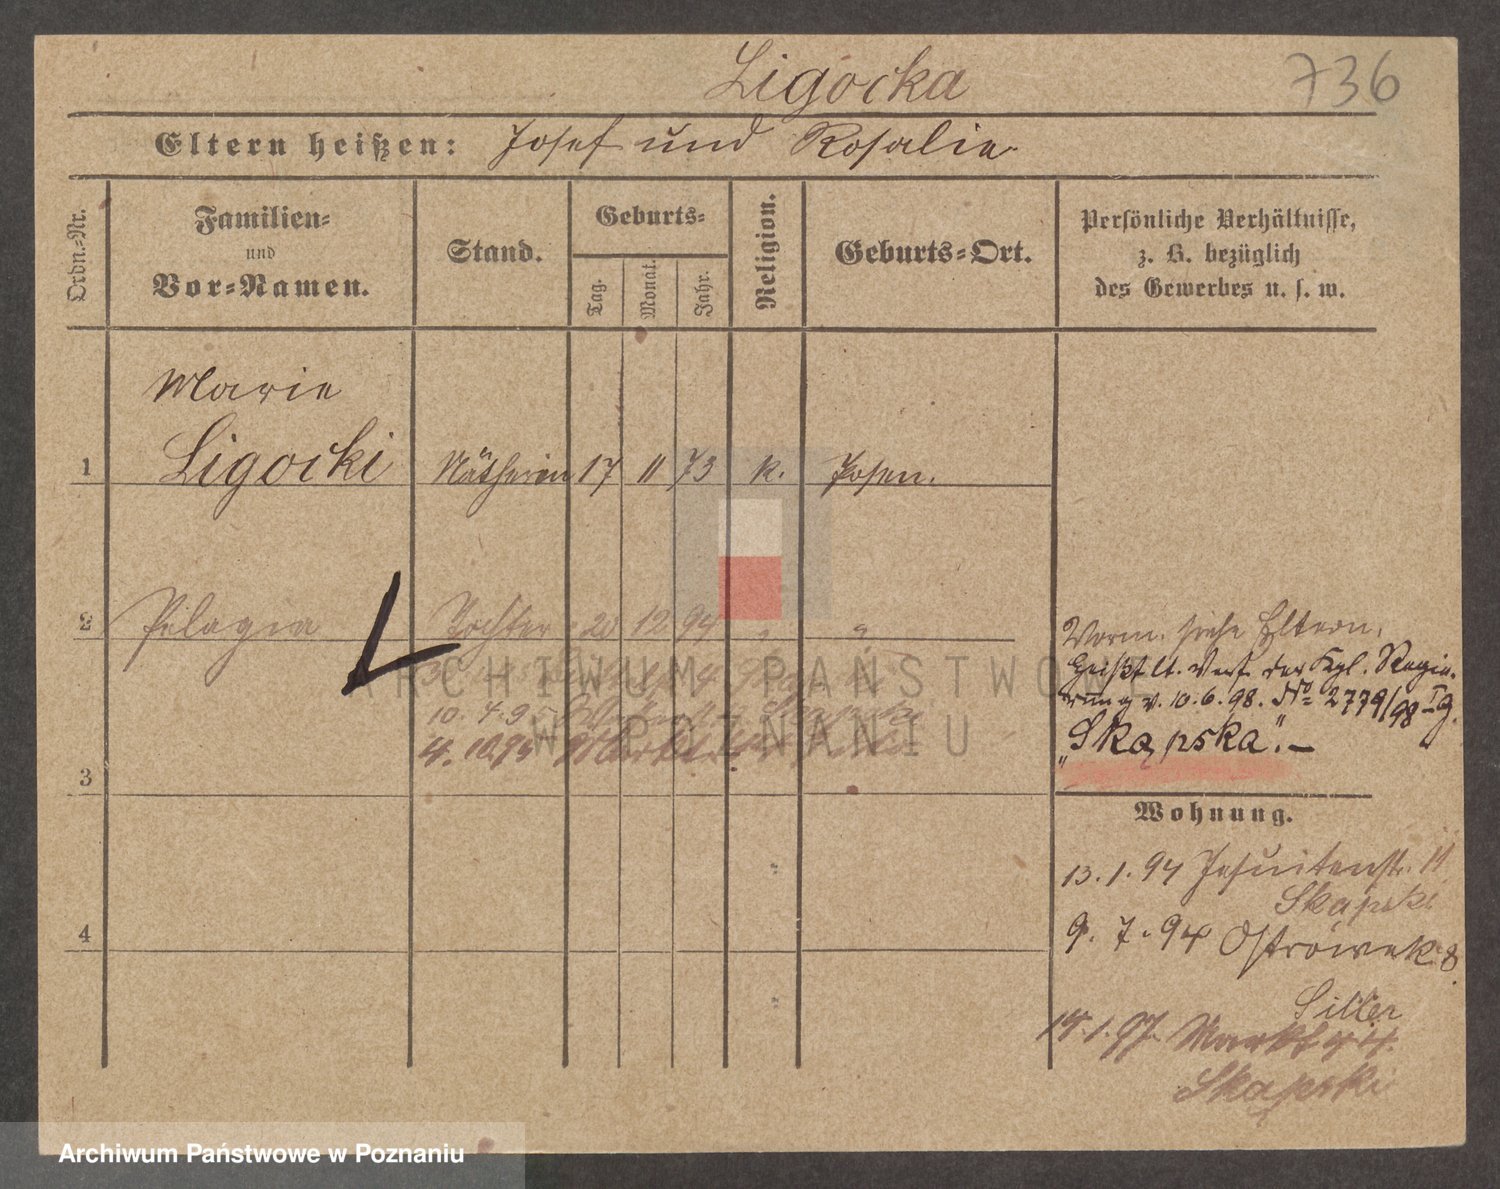 Ligocka
736
Eltern heißen: Josef und Rosalie
Ordn.-Nr.
Familien-
und
Vor-Namen.
Stand.
Geburts-
Tag.
Monat.
Jahr.
Religion.
Geburts-Ort.
Persönliche Verhältnisse,
z. B. bezüglich
des Gewerbes u. s. w.
Marie
1 Ligocki Nätherin 17 11 73 k. Posen.
2 Pelagia Tochter 20 12 94 " "
Vorm. siehe Eltern.
Heißt lt. Verf. der Kgl. Regie-
rung v. 10.6.98. No 2779/98 I g.
"Skąpska".-
10. 4. 95
4. 10. 95
3
Wohnung.
13. 1. 94 Jesuitenstr. 11
Skąpski
4
9. 7. 94 Ostrówek 8.
Siller
14. 1. 97. Markt
Skąpski
ARCHIWUM PAŃSTWOWE
W POZNANIU
Archiwum Państwowe w Poznaniu